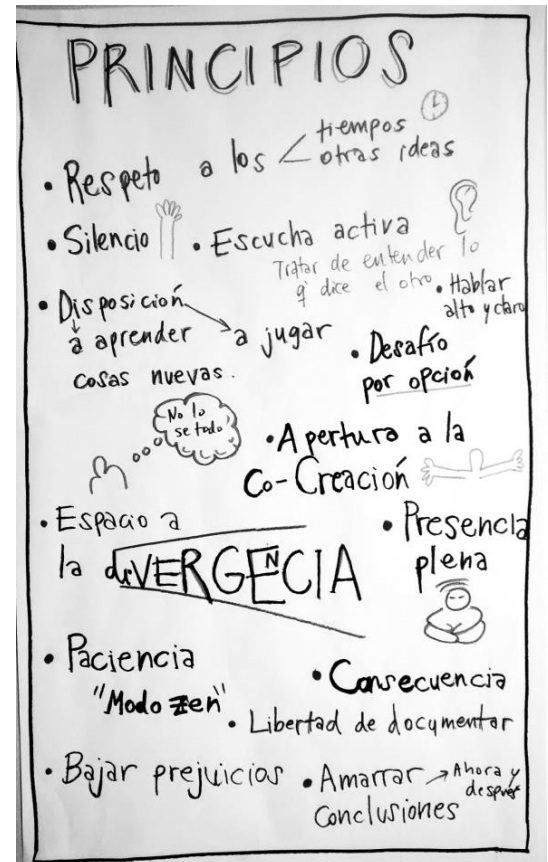 PRINCIPIOS
• Respeto a los < tiempos
otras ideas
• Silencio
• Escucha activa
Tratar de entender lo
q' dice el otro
• Hablar
alto y claro
• Disposición
a aprender
cosas nuevas.
a jugar
• Desafío
por opción
No lo
se todo
• Apertura a la
Co-Creación
• Espacio a
la diVERGENCIA
• Presencia
plena
• Paciencia
"Modo Zen"
• Consecuencia
• Libertad de documentar
• Bajar prejuicios
• Amarrar → Ahora y
después
Conclusiones